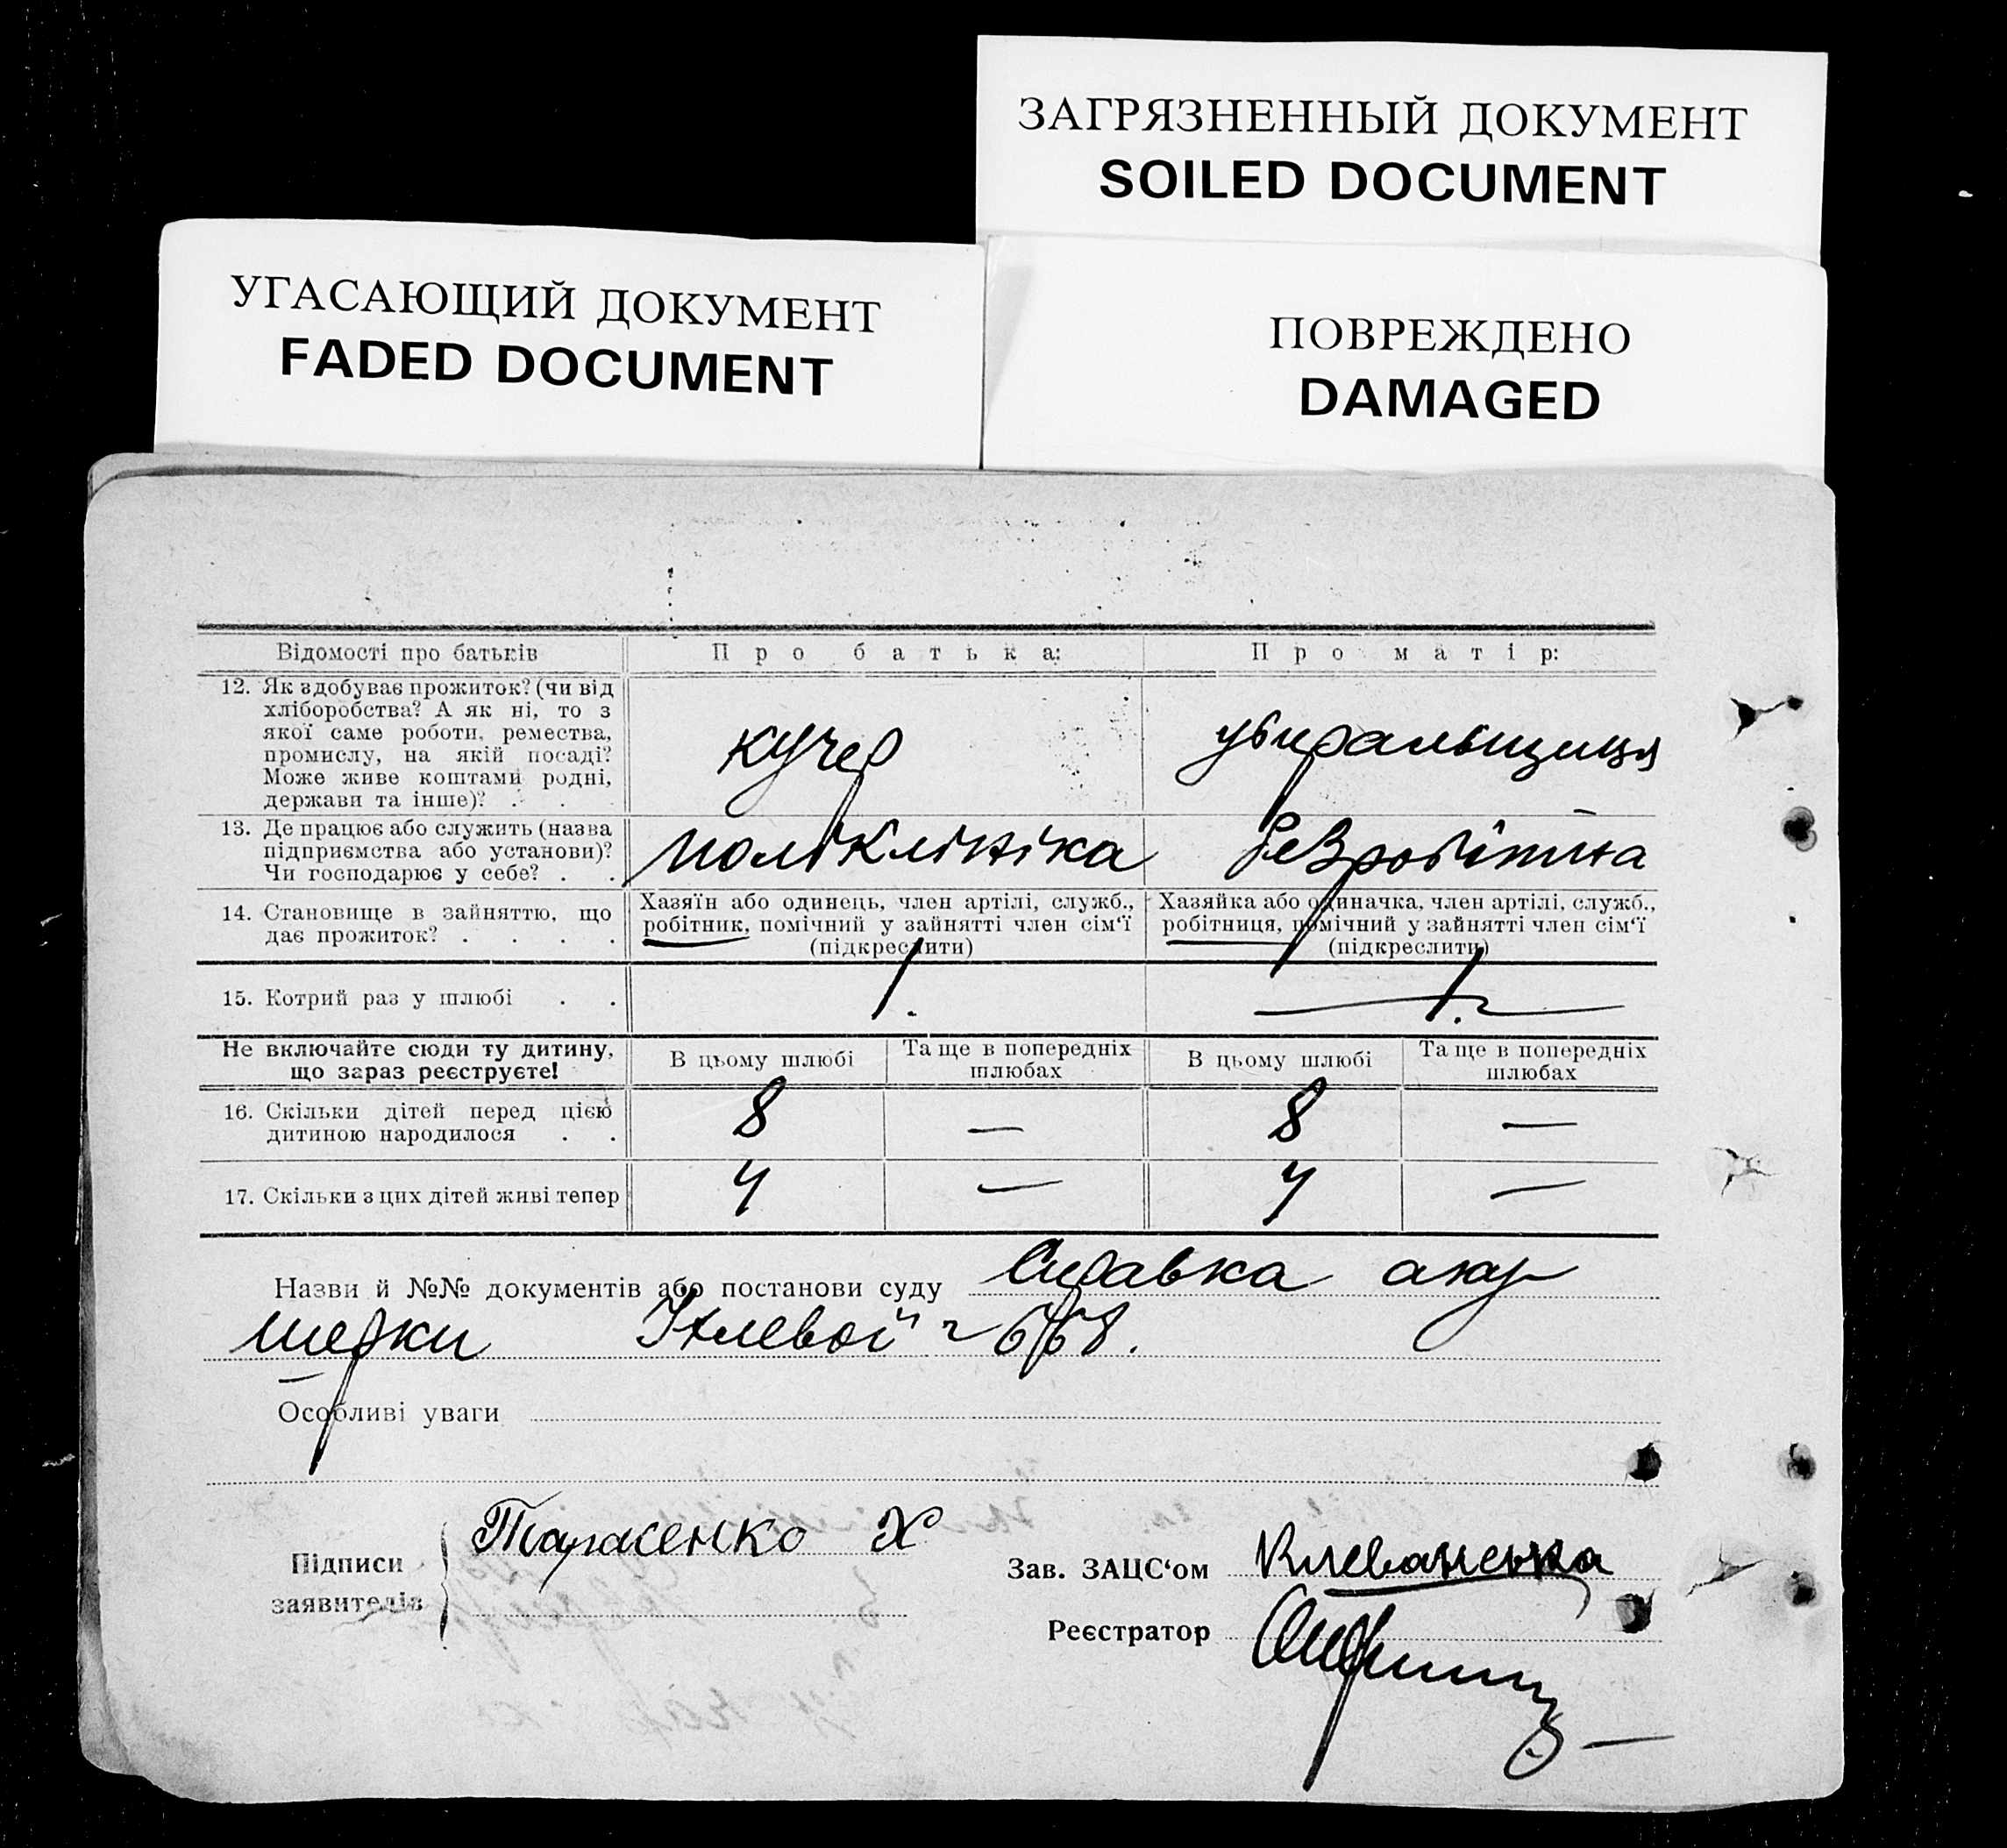 ЗАГРЯЗНЕННЫЙ ДОКУМЕНТ
SOILED DOCUMENT
УГАСАЮЩИЙ ДОКУМЕНТ
FADED DOCUMENT
ПОВРЕЖДЕНО
DAMAGED
Відомості про батьків
Про батька:
Про матір:
12. Як здобуває прожиток? (чи від
хліборобства? А як ні, то з
якої саме роботи, ремества,
промислу, на якій посаді?
Може живе коштами родні,
держави та інше)? . .
кучер
убиральщиця
13. Де працює або служить (назва
підприємства або установи)?
Чи господарює у себе? . .
поліклініка
безробітна
14. Становище в зайняттю, що
дає прожиток? . . . .
Хазяїн або одинець, член артілі, служб.,
робітник, помічний у зайнятті член сім‘ї
(підкреслити)
Хазяйка або одиначка, член артілі, служб.,
робітниця, помічний у зайнятті член сім‘ї
(підкреслити)
15. Котрий раз у шлюбі . .
1.
1.
Не включайте сюди ту дитину,
що зараз реєструєте!
В цьому шлюбі
Та ще в попередніх
шлюбах
В цьому шлюбі
Та ще в попередніх
шлюбах
16. Скільки дітей перед цією
дитиною народилося . .
8 — 8 —
17. Скільки з цих дітей живі тепер
4 — 4 —
Назви й №№ документів або постанови суду Справка аку
шерки
Особливі уваги
Підписи
заявителів
Тарасенко Х
Зав. ЗАЦС‘ом
Реєстратор